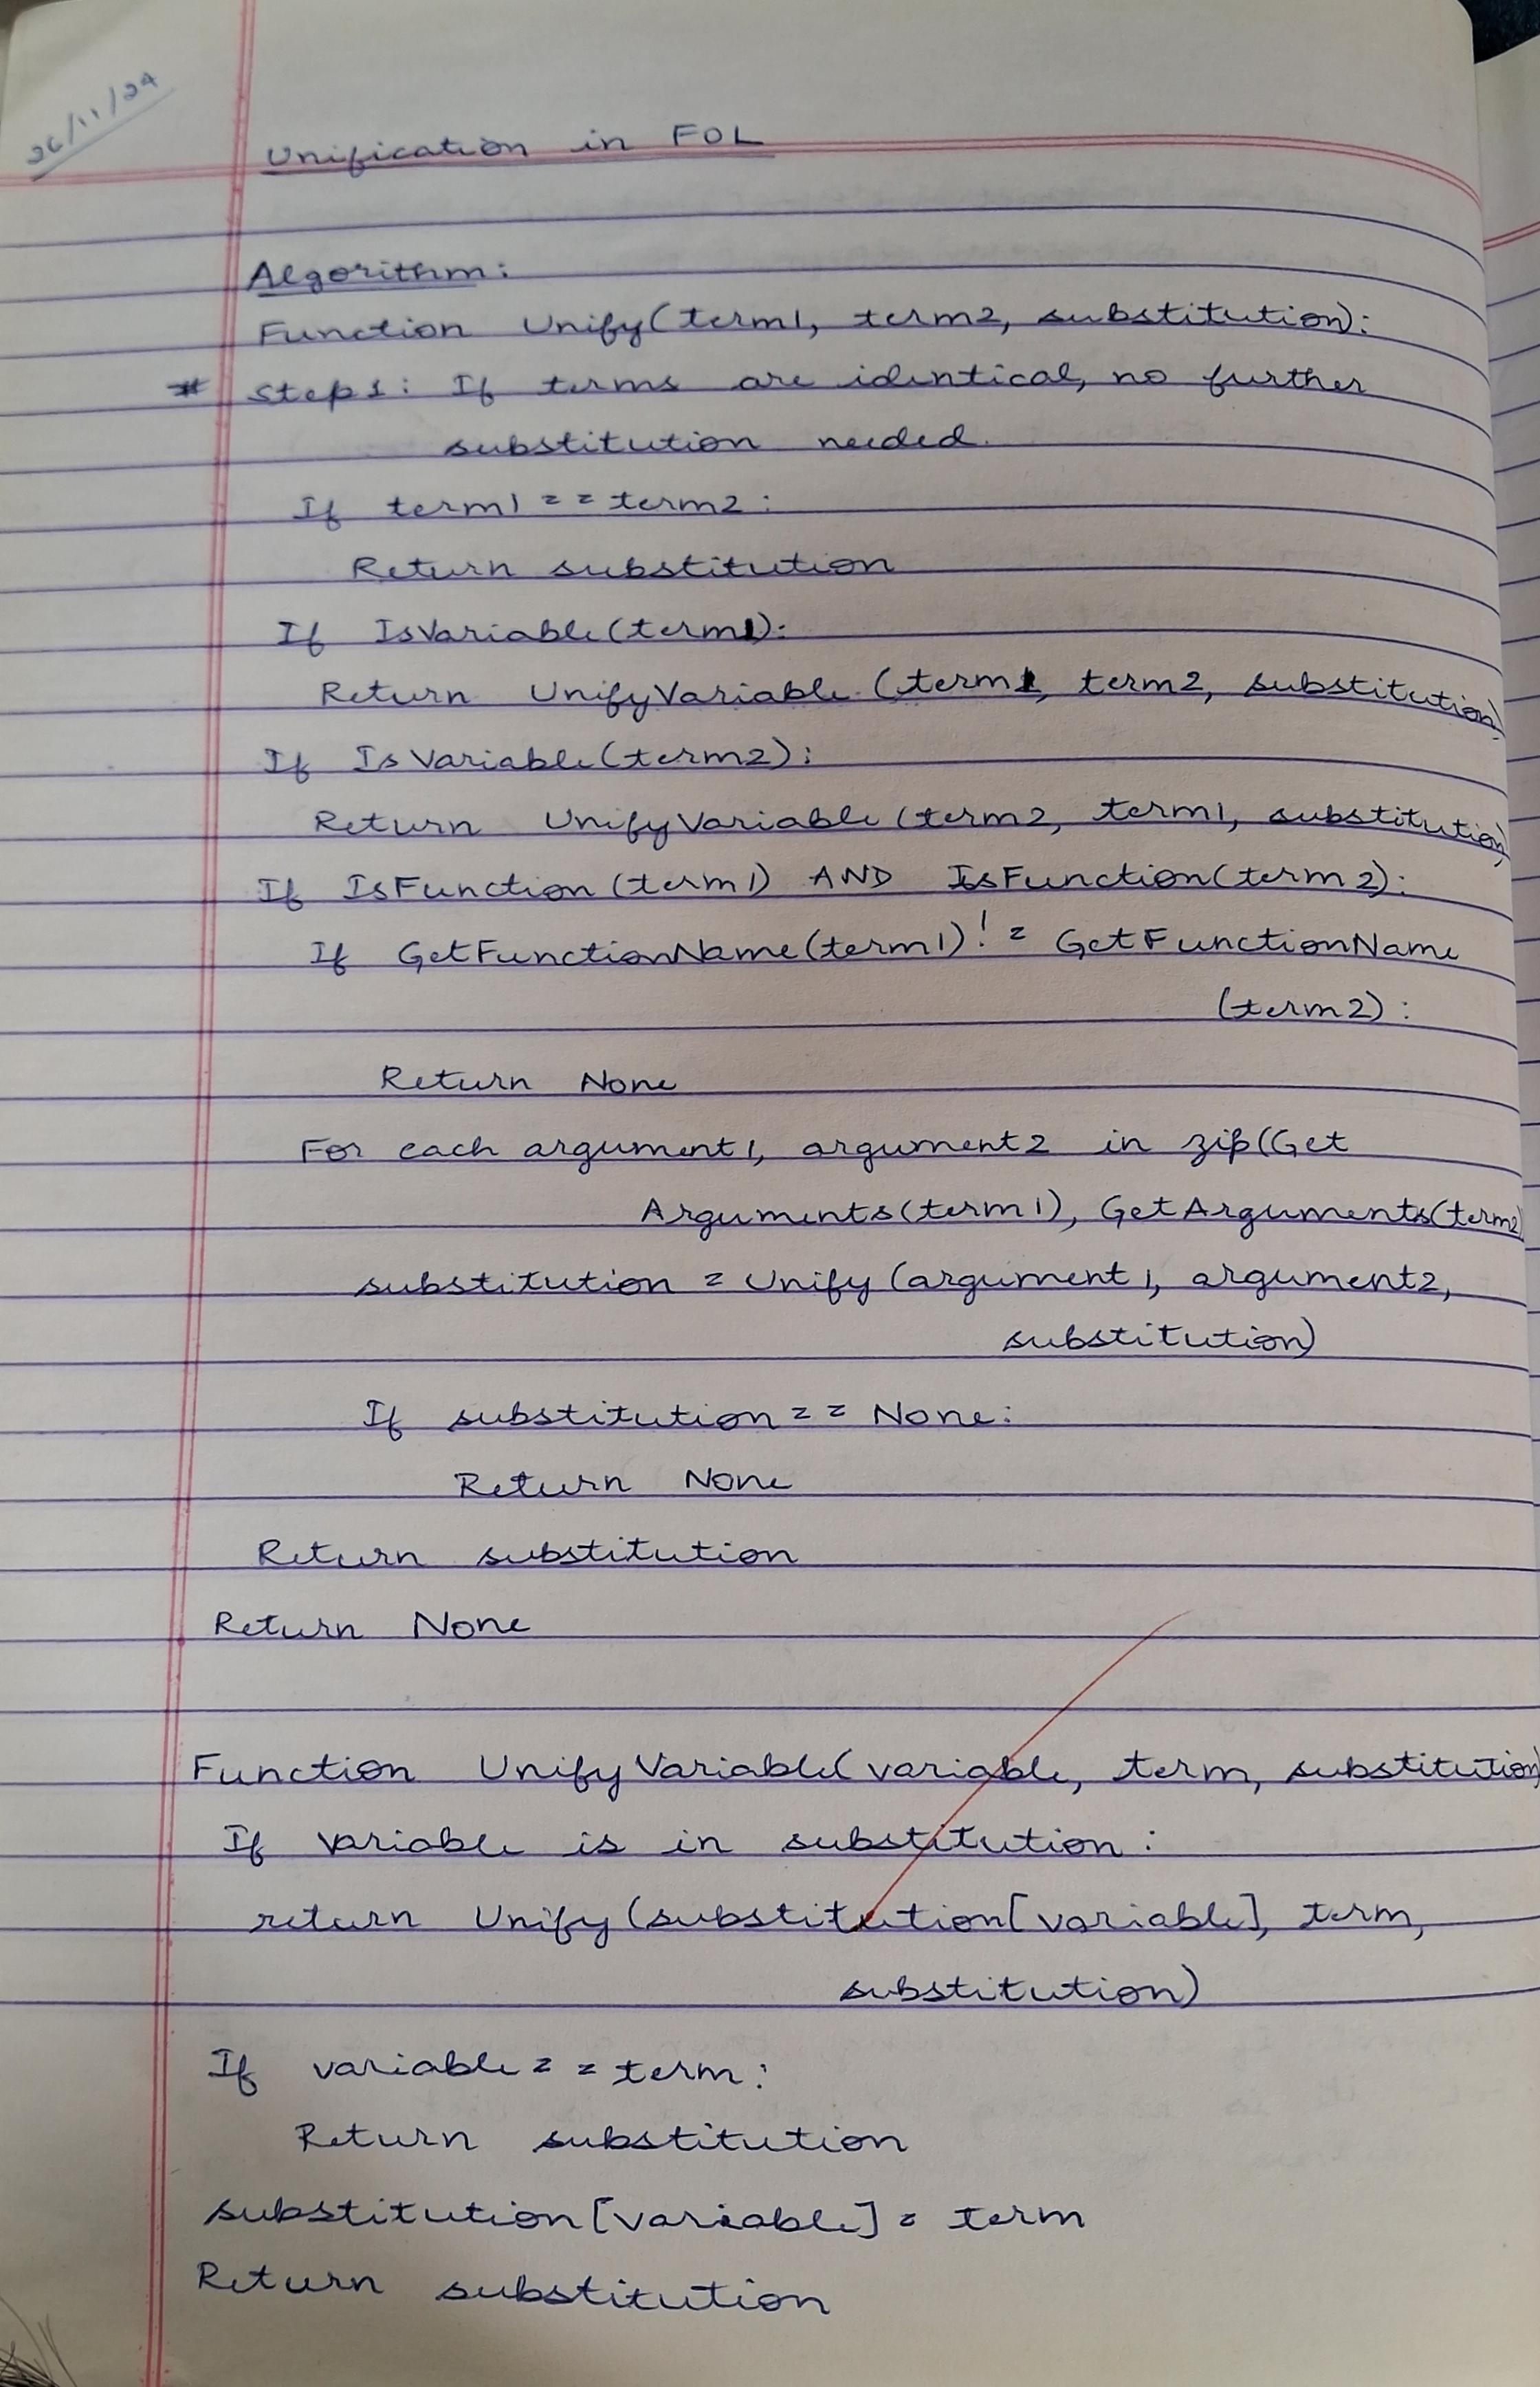 26/11/24
Unification in FOL
Algorithm:
Function Unify(term1, term2, substitution):
* Step1: If terms are identical, no further
substitution needed.
If term1 == term2:
Return substitution
If IsVariable(term1):
Return UnifyVariable (term1, term2, substitution)
If IsVariable(term2):
Return UnifyVariable (term2, term1, substitution)
If IsFunction (term1) AND IsFunction(term2):
If GetFunctionName(term1) != GetFunctionName
(term2):
Return None
For each argument1, argument2 in zip(Get
Arguments(term1), GetArguments(term2)
substitution = Unify (argument1, argument2,
substitution)
If substitution == None:
Return None
Return substitution
Return None
Function UnifyVariable(variable, term, substitution)
If variable is in substitution:
return Unify (substitution[variable], term,
substitution)
If variable == term:
Return substitution
substitution[variable] = term
Return substitution